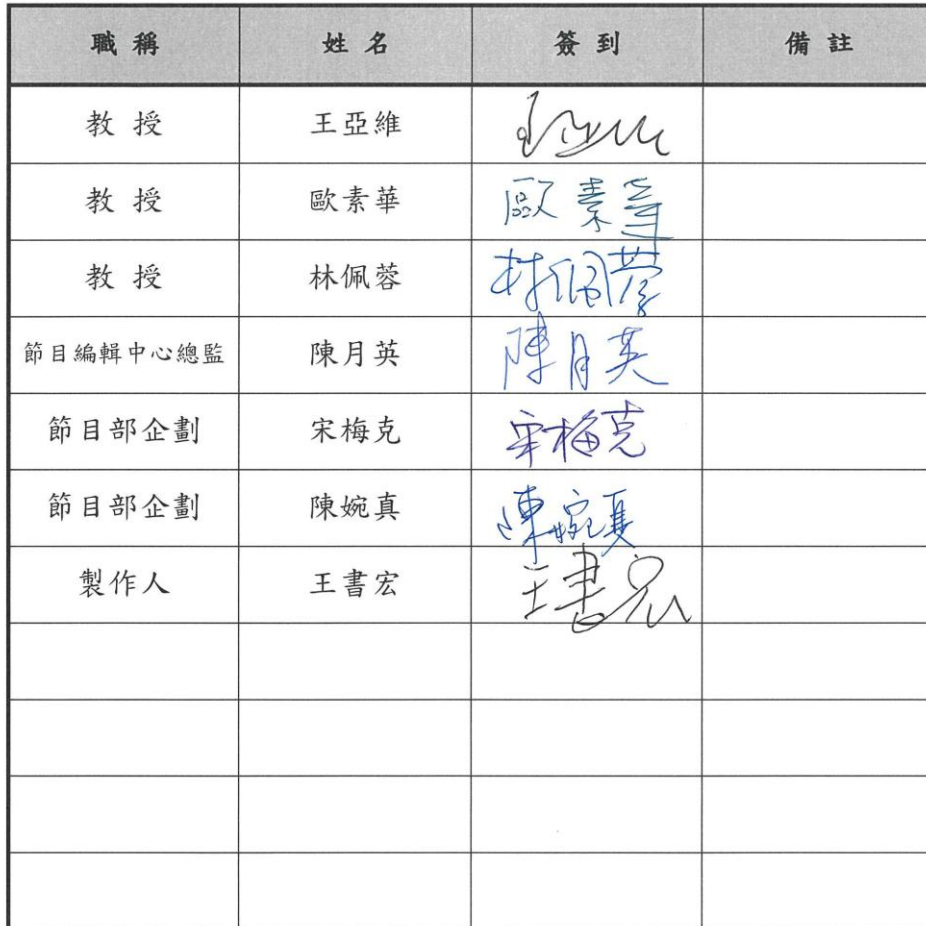 職稱 姓名 簽到 備註
教授 王亞維 王亞維
教授 歐素華 歐素華
教授 林佩蓉 林佩蓉
節目編輯中心總監 陳月英 陳月英
節目部企劃 宋梅克 宋梅克
節目部企劃 陳婉真 陳婉真
製作人 王書宏 王書宏